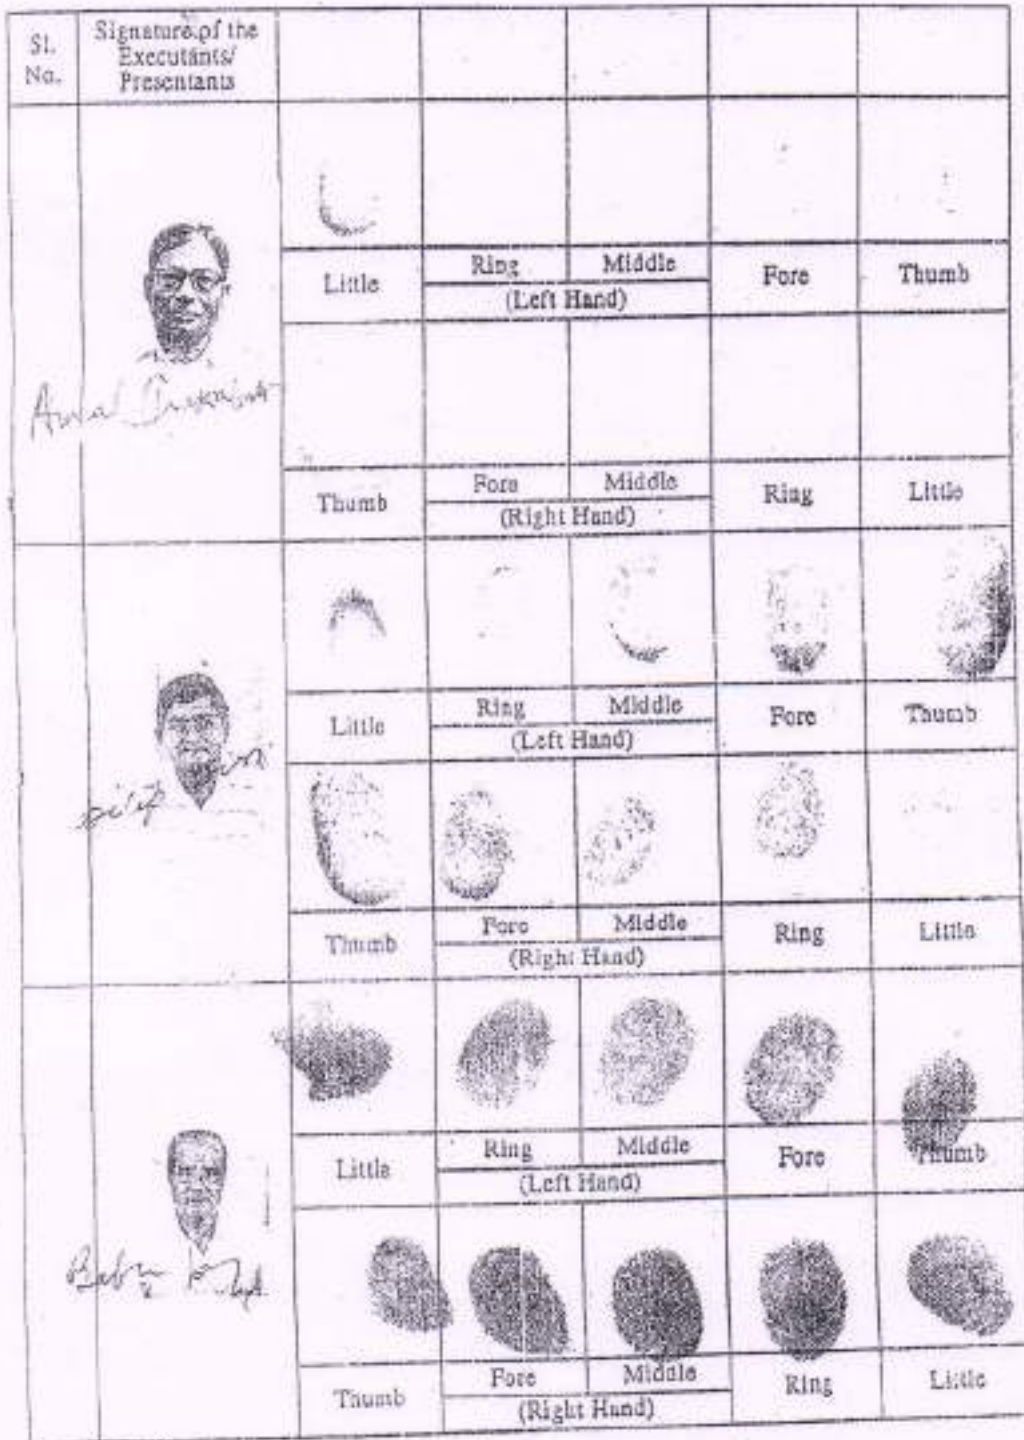 Sl. No.
Signature of the Executants/ Presentants
Little Ring Middle Fore Thumb
(Left Hand)
Thumb Fore Middle Ring Little
(Right Hand)
Little Ring Middle Fore Thumb
(Left Hand)
Thumb Fore Middle Ring Little
(Right Hand)
Little Ring Middle Fore Thumb
(Left Hand)
Thumb Fore Middle Ring Little
(Right Hand)